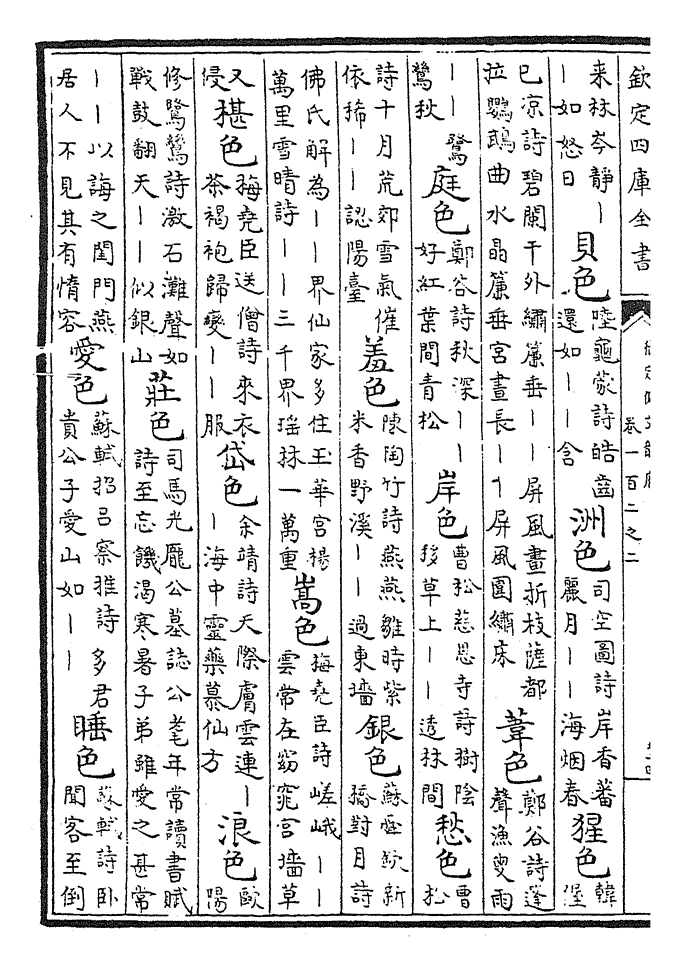 欽定四庫全書
卷一百二之二
来林岑靜丨丨如怒日 貝色 陸龜蒙詩皓齒還如丨丨含 洲色 司空圖詩岸香蕃麗月丨丨海烟春 猩色 韓偓
已凉詩碧闌干外繡簾垂丨丨屏風畫折枝薩都拉鸚鵡曲水晶簾垂宮晝長丨丨屏風圍繡床 葦色 鄭谷詩蓬聲漁叟雨
丨丨鷺鷥秋 庭色 鄭谷詩秋深丨丨好紅葉間青松 岸色 曹松慈恩寺詩樹陰移草上丨丨透林間 愁色 曹松
詩十月荒郊雪氣催依稀丨丨認陽臺 羞色 陳陶竹詩燕燕雛時紫米香野溪丨丨過東墻 銀色 蘇舜欽新橋對月詩
佛氏解為丨丨界仙家多住玉華宮楊萬里雪晴詩丨丨三千界瑶林一萬重 嵩色 梅堯臣詩嵯峨丨丨雲常在窈窕宮墻草
又侵 椹色 梅堯臣送僧詩來衣茶褐袍歸變丨丨服 岱色 余靖詩天際膚雲連丨丨海中靈藥慕仙方 浪色 歐陽
修鷺鷥詩激石灘聲如戰鼓翻天丨丨似銀山 莊色 司馬光龎公墓誌公耄年常讀書賦詩至忘饑渴寒暑子弟雖愛之甚常
丨丨以誨之閨門燕居人不見其有惰容 愛色 蘇軾招呂察推詩多君貴公子愛山如丨丨 睡色 蘇軾詩卧聞客至倒